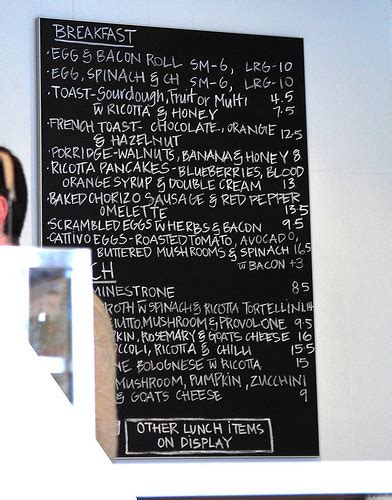 BREAKFAST
·EGG & BACON ROLL SM-6, LRG-10
·EGG, SPINACH & CH SM-6, LRG-10
·TOAST-Sourdough, Fruit or Multi 4.5
W RICOTTA & HONEY 7.5
·FRENCH TOAST- CHOCOLATE, ORANGE 12.5
& HAZELNUT
·PORRIDGE-WALNUTS, BANANA & HONEY 8
·RICOTTA PANCAKES-BLUEBERRIES, BLOOD
ORANGE SYRUP & DOUBLE CREAM 13
·BAKED CHORIZO SAUSAGE & RED PEPPER
OMELETTE 13.5
·SCRAMBLED EGGS W HERBS & BACON 9.5
·CATTIVO EGGS-ROASTED TOMATO, AVOCADO,
BUTTERED MUSHROOMS & SPINACH 16.5
W BACON +3
CH
MINESTRONE 8.5
ROTH W SPINACH & RICOTTA TORTELLINI 14
IUTTO, MUSHROOM & PROVOLONE 9.5
KIN, ROSEMARY & GOATS CHEESE 16
CCOLI, RICOTTA & CHILLI 15.5
NE BOLOGNESE W RICOTTA 15
MUSHROOM, PUMPKIN, ZUCCHINI
& GOATS CHEESE 9
OTHER LUNCH ITEMS
ON DISPLAY